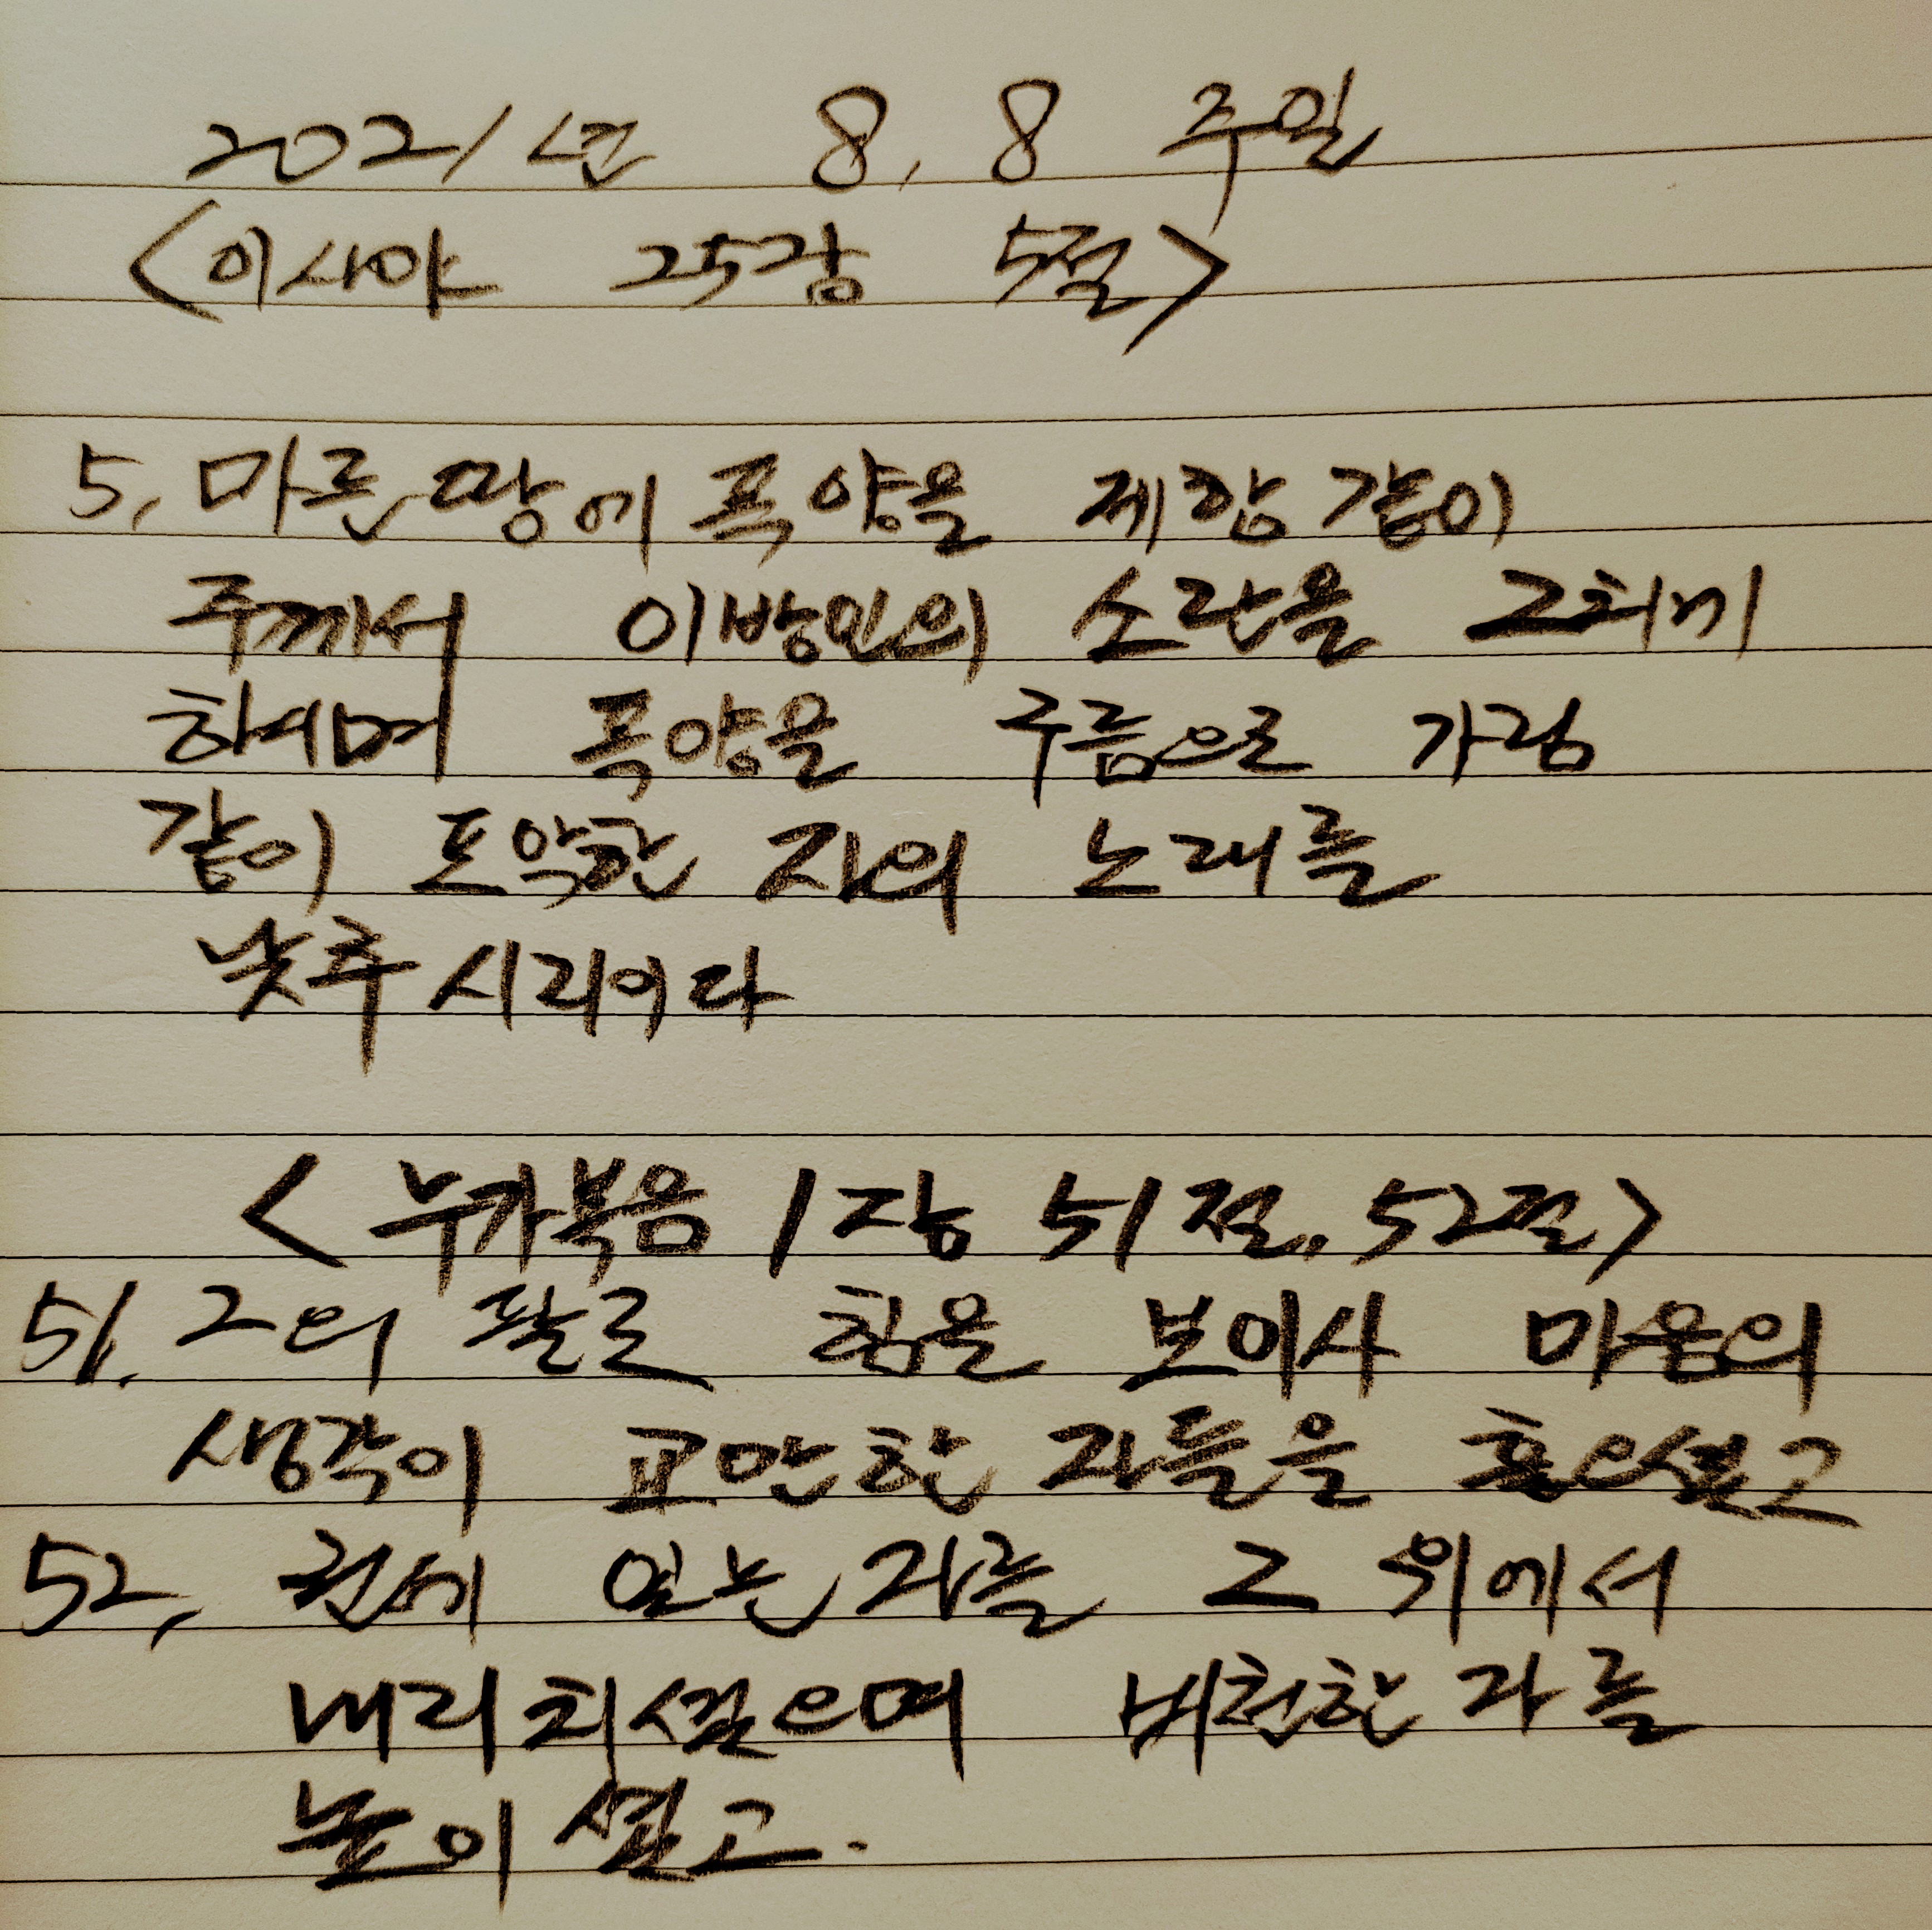 2021년 8. 8 주일
<이사야 25장 5절>
5. 마른 땅에 폭양을 제함 같이
주께서 이방인의 소란을 그치게
하시며 폭양을 구름으로 가림
같이 포악한 자의 노래를
낮추시리이다
<누가복음 1장 51절. 52절>
51. 그의 팔로 힘을 보이사 마음의
생각이 교만한 자들을 흩으셨고
52, 권세 있는 자를 그 위에서
내리치셨으며 비천한 자를
높이셨고.